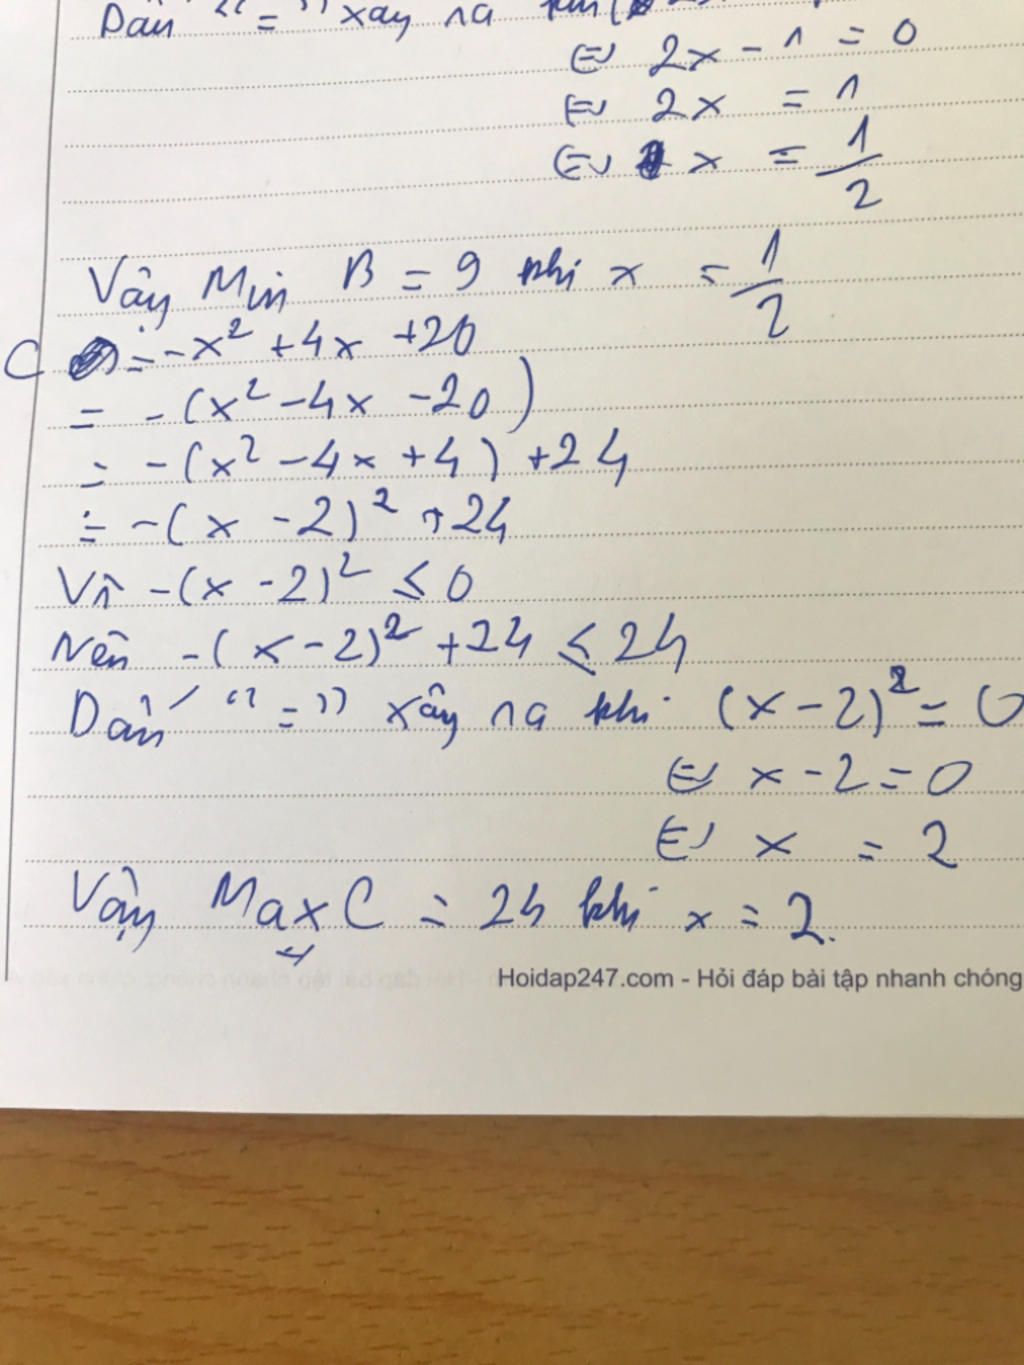 Dấu "=" xảy ra khi
⇔ 2x - 1 = 0
⇔ 2x = 1
⇔ x = 1/2
Vậy Min B = 9 khi x = 1/2
C = -x² + 4x + 20
= -(x² - 4x - 20)
= -(x² - 4x + 4) + 24
= -(x - 2)² + 24
Vì -(x - 2)² ≤ 0
Nên -(x - 2)² + 24 ≤ 24
Dấu "=" xảy ra khi (x - 2)² = 0
⇔ x - 2 = 0
⇔ x = 2
Vậy Max C = 24 khi x = 2.
Hoidap247.com - Hỏi đáp bài tập nhanh chóng